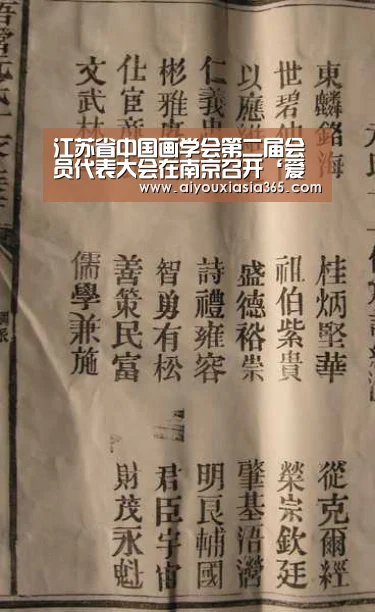 江苏省中国画学会第二届会
员代表大会在南京召开‘爱
www.aiyouxiasia365.com
東麟銘海 桂炳堅華 從克爾經
世碧仙 祖伯紫貴 榮宗欽廷
以應 盛德裕崇 肇基浯灣
仁義忠 詩禮雍容 明良輔國
彬雅 智勇有松 君臣宇宙
仕宦 善策民富 財茂永魁
文武林 儒學兼施